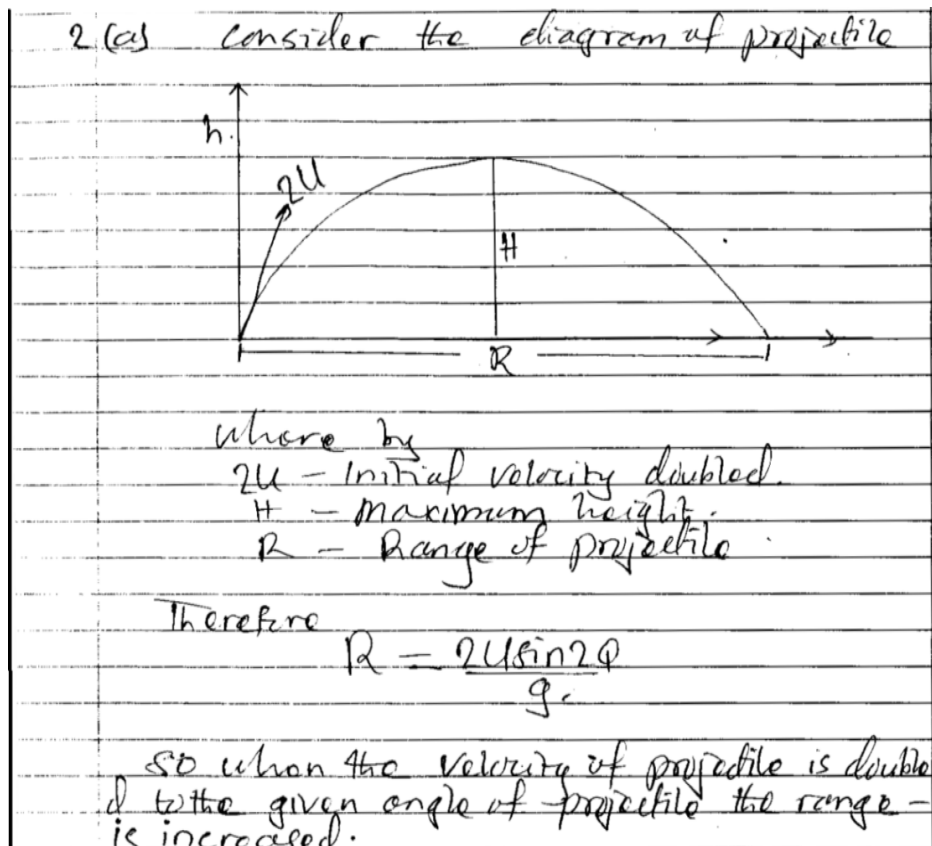 2 (a) Consider the diagram of projectile
h.
2U
H
R
Where by
2U - Initial velocity doubled.
H - maximum height.
R - Range of projectile
Therefore
R = 2Usin2θ
g.
So when the velocity of projectile is double
d to the given angle of projectile the range -
is increased.